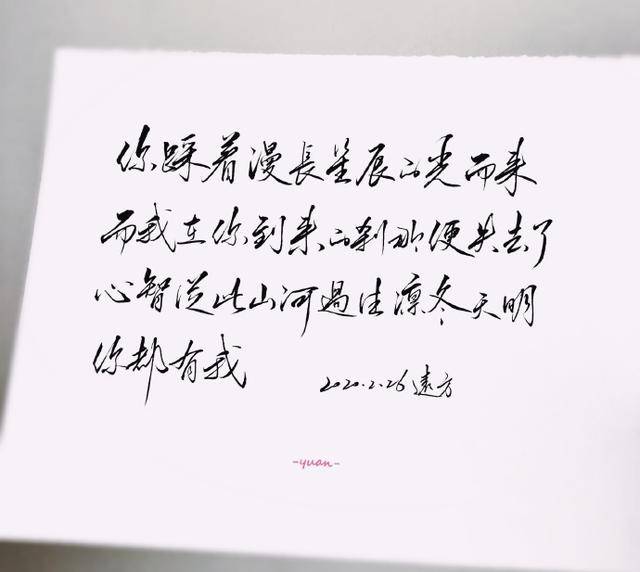 你踩着漫長星辰的光而来
而我在你到来的刹那便失去了
心智從此山河過往凛冬天明
你都有我
2020.2.26遠方
-yuan-